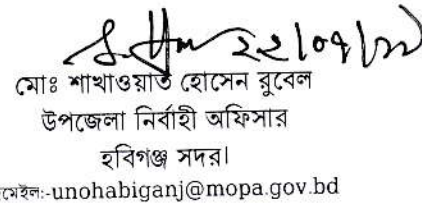 ২২/০৭/২১
মোঃ শাখাওয়াত হোসেন রুবেল
উপজেলা নির্বাহী অফিসার
হবিগঞ্জ সদর।
ইমেইল:-unohabiganj@mopa.gov.bd